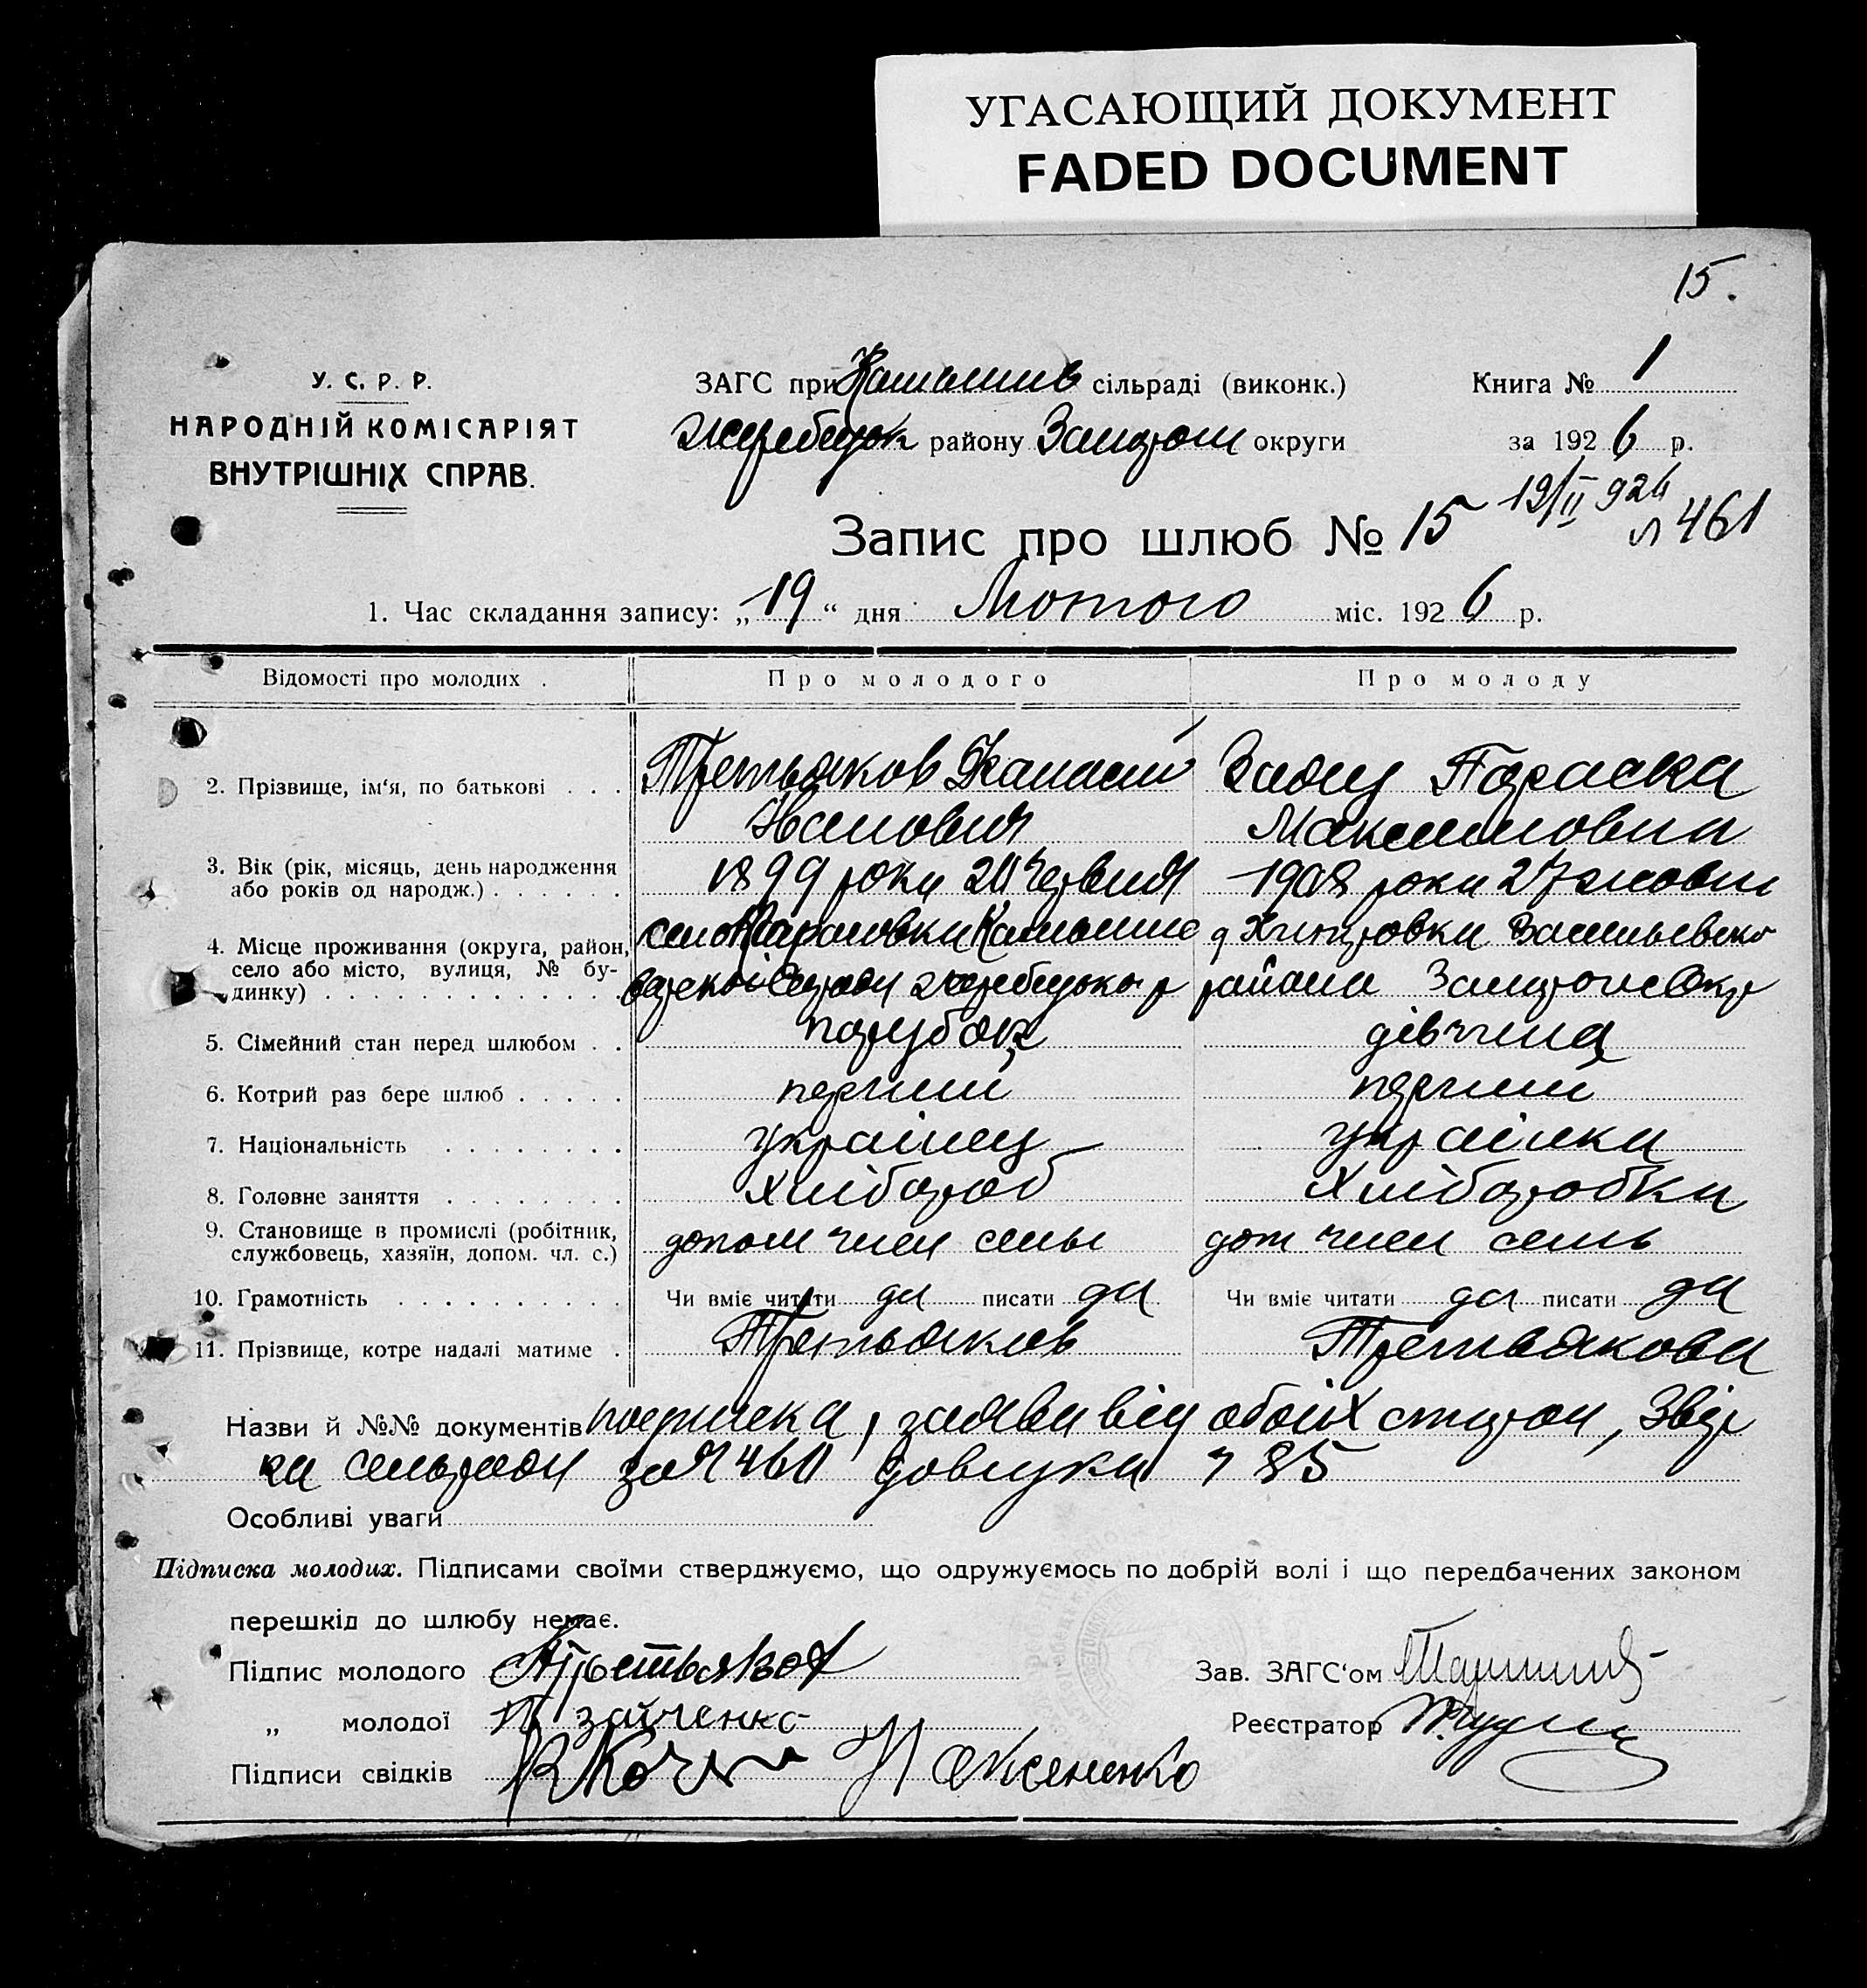 УГАСАЮЩИЙ ДОКУМЕНТ
FADED DOCUMENT
15.
У. С. Р. Р.
НАРОДНІЙ КОМІСАРІЯТ
ВНУТРІШНІХ СПРАВ.
ЗАГС при сільраді (виконк.)
Жеребецьк району Запорож округи
Книга № 1
за 1926 р.
19/II 926
461
Запис про шлюб № 15
1. Час складання запису: „19“ дня Лютого міс. 1926 р.
Відомості про молодих .
Про молодого
Про молоду
2. Прізвище, ім‘я, по батькові . . .
Третьяков Панасий
Иванович
Параска
Максимовна
3. Вік (рік, місяць, день народження
або років од народж.) . . . . . .
1899 роки 20 червня
1908 роки 27 жовтн
4. Місце проживання (округа, район,
село або місто, вулиця, № бу-
динку) . . . . . . . . . . . . . .
село
району Запорожс Окр
5. Сімейний стан перед шлюбом . .
парубок
дівчина
6. Котрий раз бере шлюб . . . . .
перший
перший
7. Національність . . . . . . . .
українец
українка
8. Головне заняття . . . . . . .
Хлібороб
Хліборобка
9. Становище в промислі (робітник,
службовець, хазяїн, допом. чл. с.)
допом член семьи
дом член семь
10. Грамотність . . . . . . . . . .
Чи вміє читати да писати да
Чи вміє читати да писати да
11. Прізвище, котре надалі матиме .
Третьяков
Третьякова
Назви й №№ документів подписка, заява від обоїх сторон,
сельради за № 460 довидка 85
Особливі уваги
Підписка молодих. Підписами своїми стверджуємо, що одружуємось по добрій волі і що передбачених законом
перешкід до шлюбу немає.
Підпис молодого Третьяков
„ молодої П Зайченко
Підписи свідків Аксененко
Зав. ЗАГС‘ом
Реєстратор